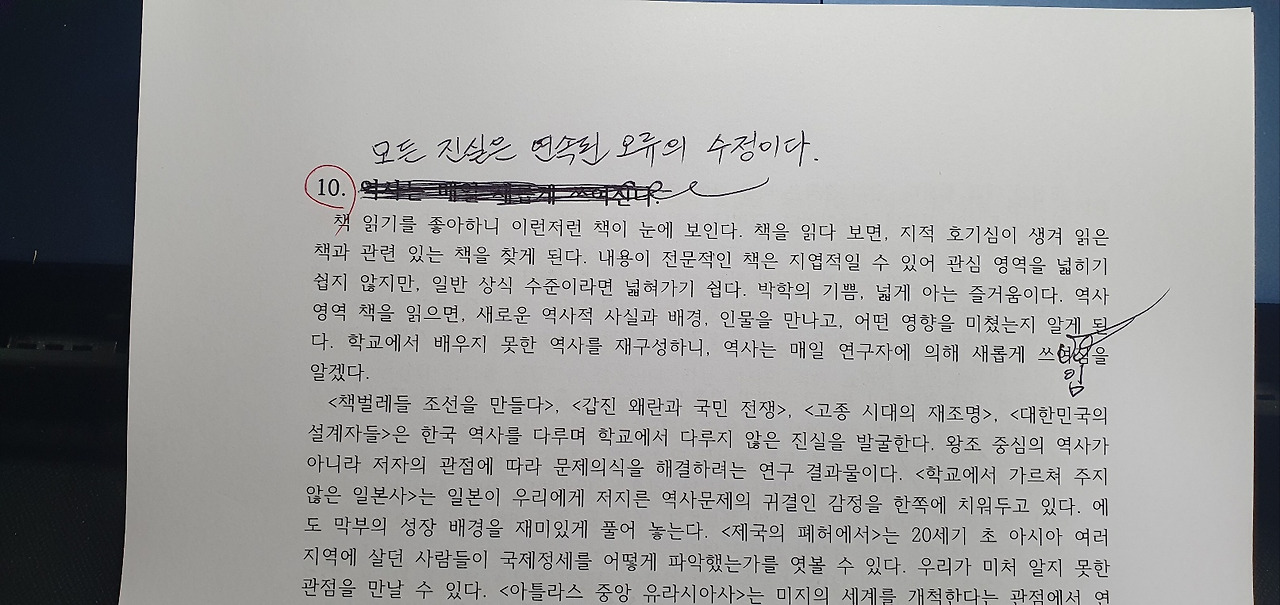 모든 진실은 연속된 오류의 수정이다.
10. 역사는 매일 새롭게 쓰여진다.
책 읽기를 좋아하니 이런저런 책이 눈에 보인다. 책을 읽다 보면, 지적 호기심이 생겨 읽은
책과 관련 있는 책을 찾게 된다. 내용이 전문적인 책은 지엽적일 수 있어 관심 영역을 넓히기
쉽지 않지만, 일반 상식 수준이라면 넓혀가기 쉽다. 박학의 기쁨, 넓게 아는 즐거움이다. 역사
영역 책을 읽으면, 새로운 역사적 사실과 배경, 인물을 만나고, 어떤 영향을 미쳤는지 알게 된
다. 학교에서 배우지 못한 역사를 재구성하니, 역사는 매일 연구자에 의해 새롭게 쓰을
임
알겠다.
<책벌레들 조선을 만들다>, <갑진 왜란과 국민 전쟁>, <고종 시대의 재조명>, <대한민국의
설계자들>은 한국 역사를 다루며 학교에서 다루지 않은 진실을 발굴한다. 왕조 중심의 역사가
아니라 저자의 관점에 따라 문제의식을 해결하려는 연구 결과물이다. <학교에서 가르쳐 주지
않은 일본사>는 일본이 우리에게 저지른 역사문제의 귀결인 감정을 한쪽에 치워두고 있다. 에
도 막부의 성장 배경을 재미있게 풀어 놓는다. <제국의 폐허에서>는 20세기 초 아시아 여러
지역에 살던 사람들이 국제정세를 어떻게 파악했는가를 엿볼 수 있다. 우리가 미처 알지 못한
관점을 만날 수 있다. <아틀라스 중앙 유라시아사>는 미지의 세계를 개척한다는 관점에서 연